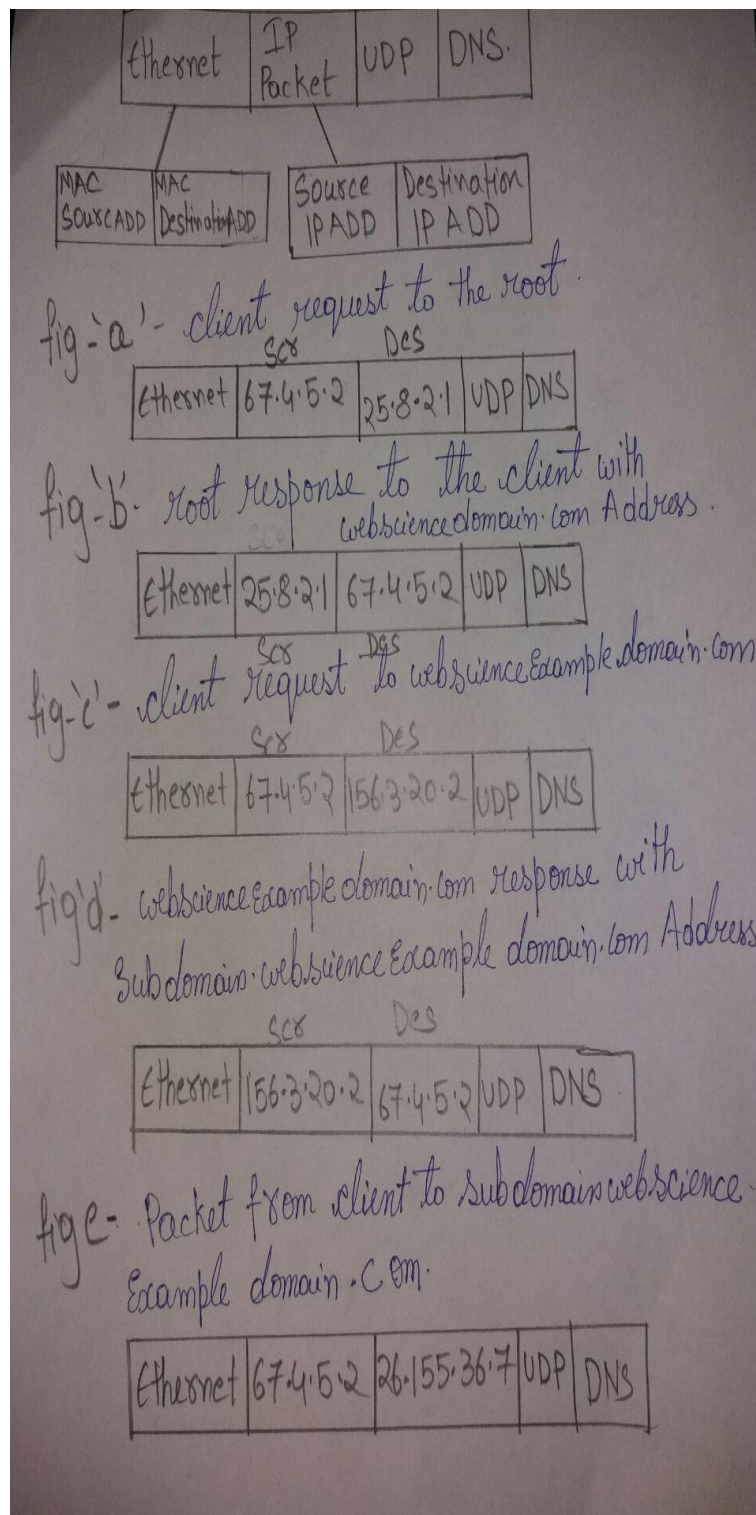 Ethernet IP Packet UDP DNS.
MAC SourcADD MAC DestinationADD Source IP ADD Destination IP ADD
fig-'a'- client request to the root.
Scr Des
Ethernet 67.4.5.2 25.8.2.1 UDP DNS
fig-'b'- root response to the client with
websciencedomain.com Address.
Ethernet 25.8.2.1 67.4.5.2 UDP DNS
Scr Des
fig-'c'- client request to webscienceExample.domain.com
Scr Des
Ethernet 67.4.5.2 156.3.20.2 UDP DNS
fig'd'- webscienceExample domain.com response with
Subdomain.webscienceExample domain.com Address
Scr Des
Ethernet 156.3.20.2 67.4.5.2 UDP DNS
fig e- Packet from client to subdomainwebscience.
Example domain.com.
Ethernet 67.4.5.2 26.155.36.7 UDP DNS